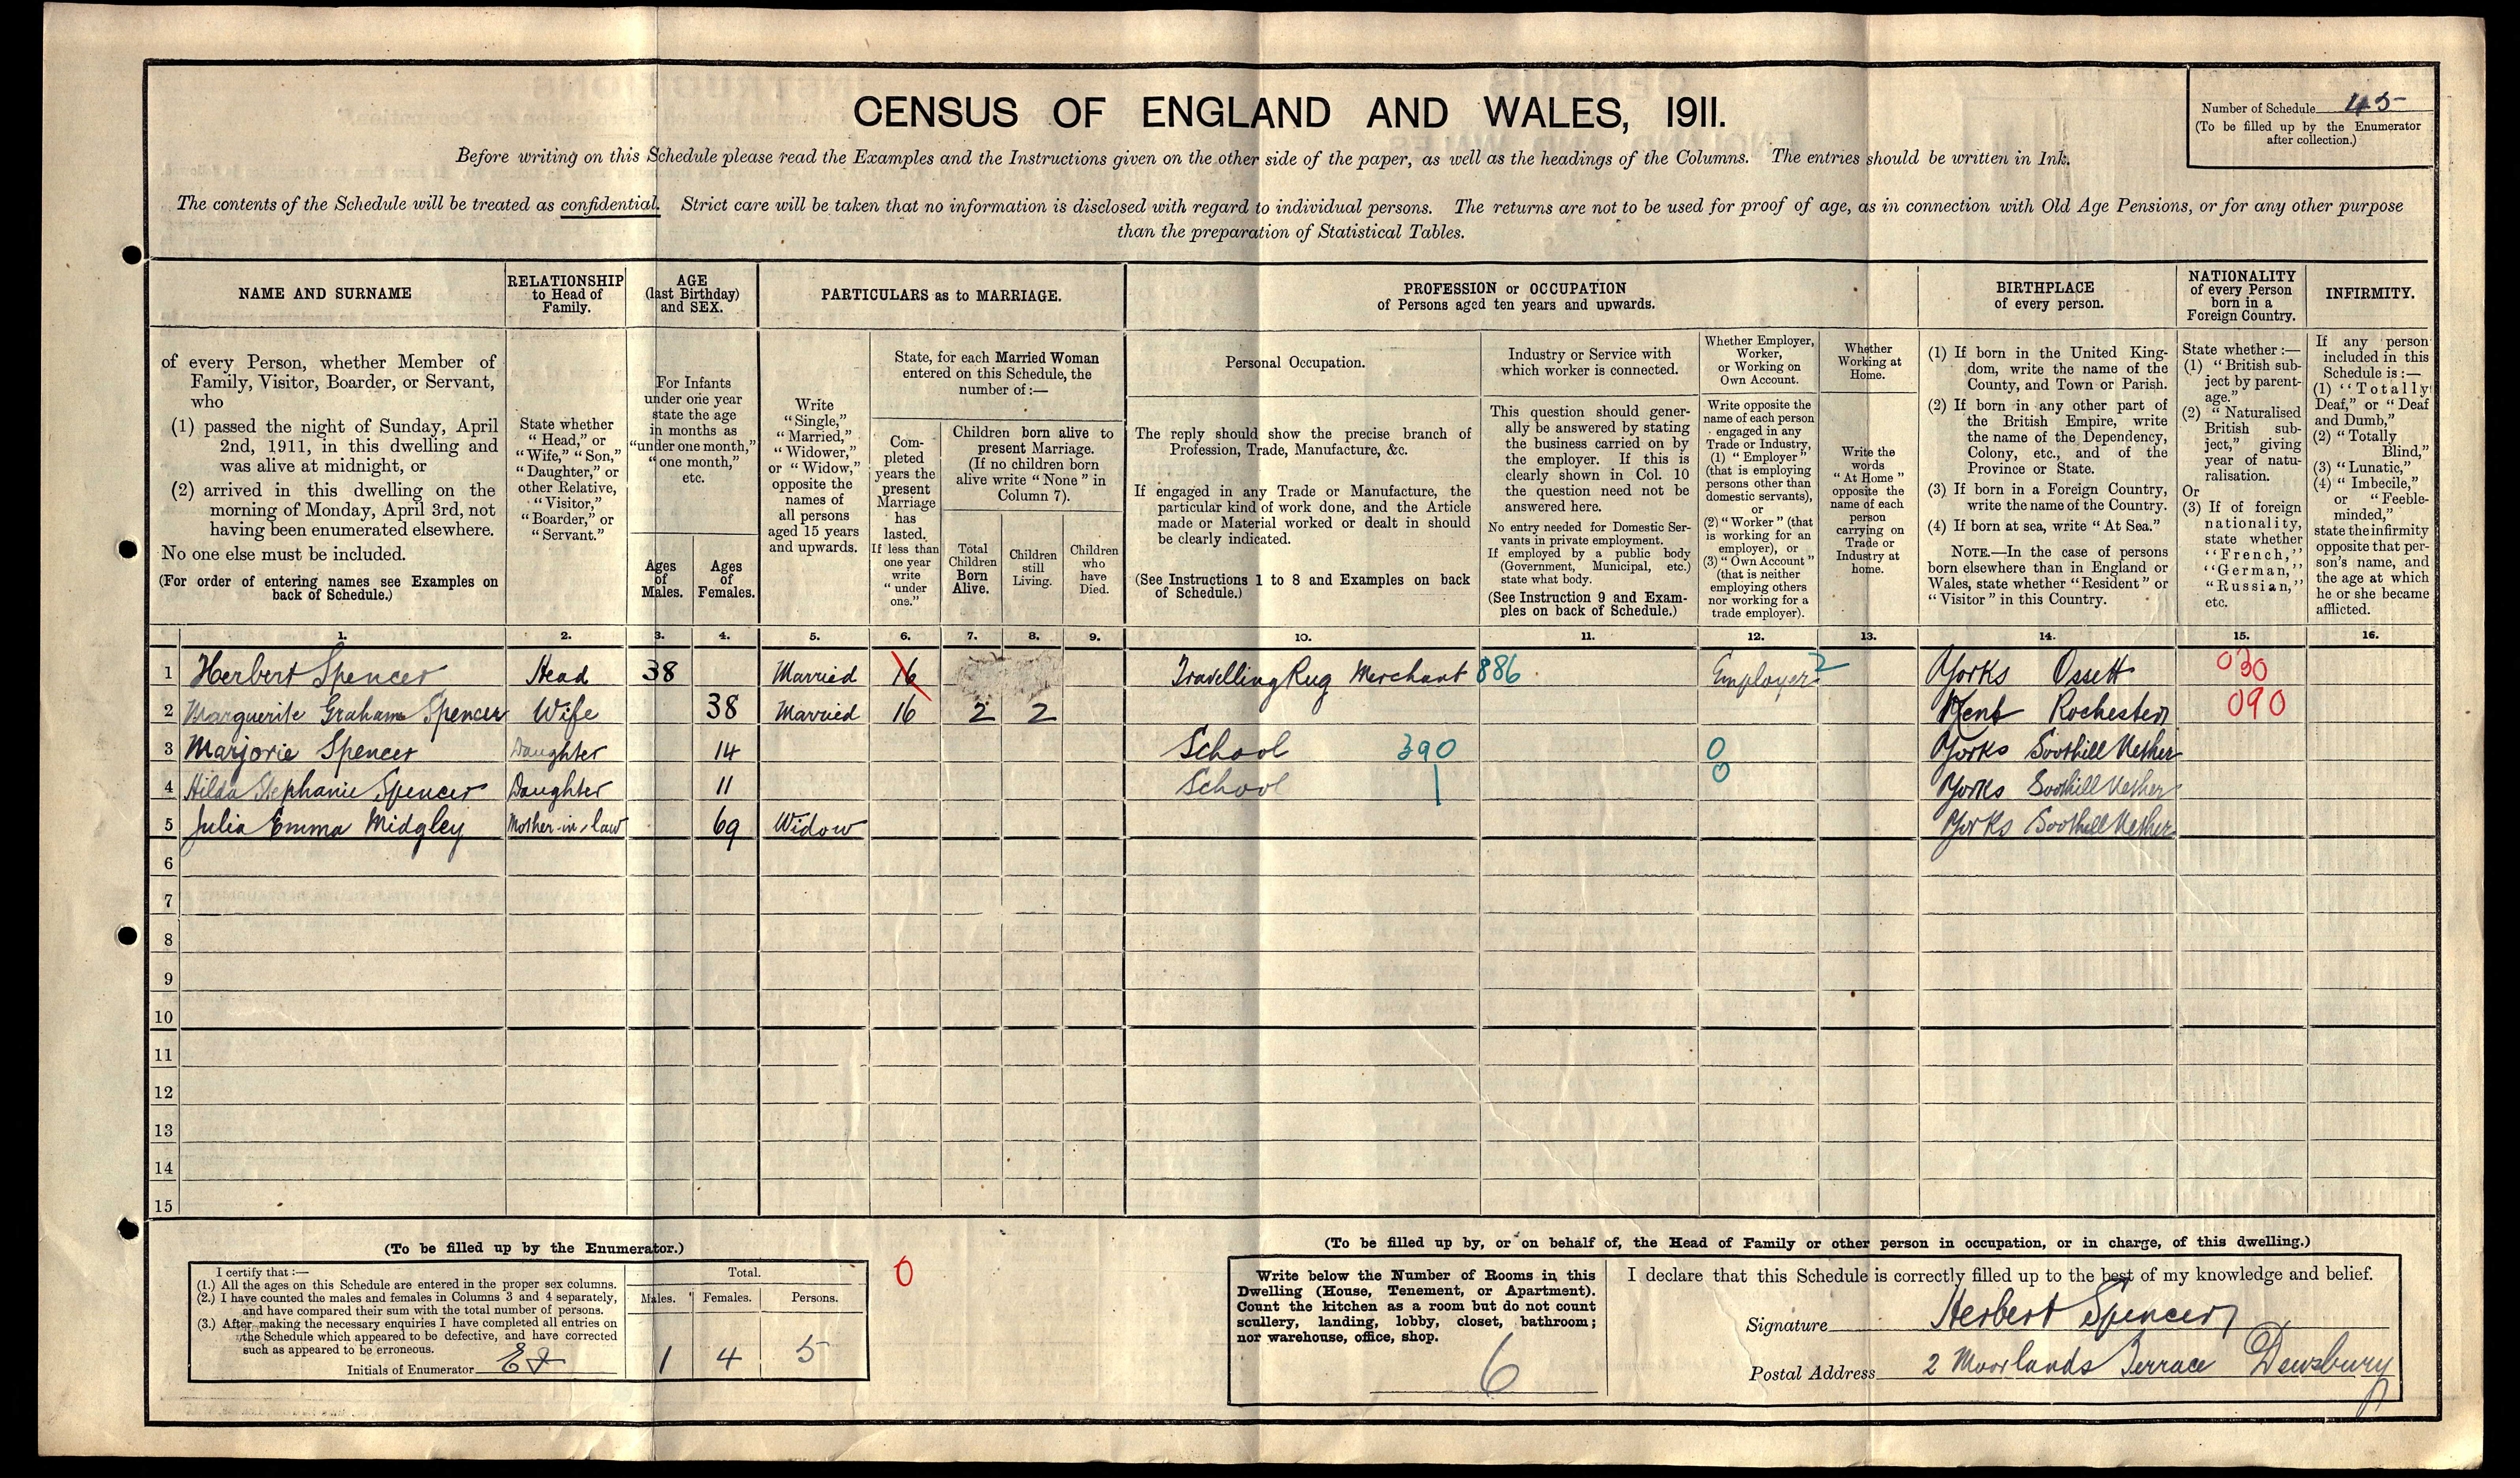 CENSUS OF ENGLAND AND WALES, 1911.
Number of Schedule 45
(To be filled up by the Enumerator
after collection.)
Before writing on this Schedule please read the Examples and the Instructions given on the other side of the paper, as well as the headings of the Columns. The entries should be written in Ink.
The contents of the Schedule will be treated as confidential. Strict care will be taken that no information is disclosed with regard to individual persons. The returns are not to be used for proof of age, as in connection with Old Age Pensions, or for any other purpose
than the preparation of Statistical Tables.
NAME AND SURNAME
of every Person, whether Member of
Family, Visitor, Boarder, or Servant,
who
(1) passed the night of Sunday, April
2nd, 1911, in this dwelling and
was alive at midnight, or
(2) arrived in this dwelling on the
morning of Monday, April 3rd, not
having been enumerated elsewhere.
No one else must be included.
(For order of entering names see Examples on
back of Schedule.)
RELATIONSHIP
to Head of
Family.
State whether
"Head," or
"Wife," "Son,"
"Daughter," or
other Relative,
"Visitor,"
"Boarder," or
"Servant."
AGE
(last Birthday)
and SEX.
For Infants
under one year
state the age
in months as
"under one month,"
"one month,"
etc.
Ages
of
Males.
Ages
of
Females.
PARTICULARS as to MARRIAGE.
Write
"Single,"
"Married,"
"Widower,"
or "Widow,"
opposite the
names of
all persons
aged 15 years
and upwards.
State, for each Married Woman
entered on this Schedule, the
number of:—
Com-
pleted
years the
present
Marriage
has
lasted.
If less than
one year
write
"under
one."
Children born alive to
present Marriage.
(If no children born
alive write "None" in
Column 7).
Total
Children
Born
Alive.
Children
still
Living.
Children
who
have
Died.
PROFESSION or OCCUPATION
of Persons aged ten years and upwards.
Personal Occupation.
The reply should show the precise branch of
Profession, Trade, Manufacture, &c.
If engaged in any Trade or Manufacture, the
particular kind of work done, and the Article
made or Material worked or dealt in should
be clearly indicated.
(See Instructions 1 to 8 and Examples on back
of Schedule.)
Industry or Service with
which worker is connected.
This question should gener-
ally be answered by stating
the business carried on by
the employer. If this is
clearly shown in Col. 10
the question need not be
answered here.
No entry needed for Domestic Ser-
vants in private employment.
If employed by a public body
(Government, Municipal, etc.)
state what body.
(See Instruction 9 and Exam-
ples on back of Schedule.)
Whether Employer,
Worker,
or Working on
Own Account.
Write opposite the
name of each person
engaged in any
Trade or Industry,
(1) "Employer"
(that is employing
persons other than
domestic servants),
or
(2) "Worker" (that
is working for an
employer), or
(3) "Own Account"
(that is neither
employing others
nor working for a
trade employer).
Whether
Working at
Home.
Write the
words
"At Home"
opposite the
name of each
person
carrying on
Trade or
Industry at
home.
BIRTHPLACE
of every person.
(1) If born in the United King-
dom, write the name of the
County, and Town or Parish.
(2) If born in any other part of
the British Empire, write
the name of the Dependency,
Colony, etc., and of the
Province or State.
(3) If born in a Foreign Country,
write the name of the Country.
(4) If born at sea, write "At Sea."
NOTE.—In the case of persons
born elsewhere than in England or
Wales, state whether "Resident" or
"Visitor" in this Country.
NATIONALITY
of every Person
born in a
Foreign Country.
State whether:—
(1) "British sub-
ject by parent-
age."
(2) "Naturalised
British sub-
ject," giving
year of natu-
ralisation.
Or
(3) If of foreign
nationality,
state whether
"French,"
"German,"
"Russian,"
etc.
INFIRMITY.
If any person
included in this
Schedule is:—
(1) "Totally
Deaf," or "Deaf
and Dumb,"
(2) "Totally
Blind,"
(3) "Lunatic,"
(4) "Imbecile,"
or "Feeble-
minded,"
state the infirmity
opposite that per-
son's name, and
the age at which
he or she became
afflicted.
1. 2. 3. 4. 5. 6. 7. 8. 9. 10. 11. 12. 13. 14. 15. 16.
1 Herbert Spencer Head 38 Married 16 Travelling Rug Merchant 886 Employer 2 Yorks Ossett 030
2 Marguerite Graham Spencer Wife 38 Married 16 2 2 Kent Rochester 090
3 Marjorie Spencer Daughter 14 School 390 0 Yorks Soothill Nether
4 Hilda Stephanie Spencer Daughter 11 School 0 Yorks Soothill Nether
5 Julia Emma Midgley Mother-in-law 69 Widow Yorks Soothill Nether
6
7
8
9
10
11
12
13
14
15
(To be filled up by the Enumerator.)
I certify that:—
(1.) All the ages on this Schedule are entered in the proper sex columns.
(2.) I have counted the males and females in Columns 3 and 4 separately,
and have compared their sum with the total number of persons.
(3.) After making the necessary enquiries I have completed all entries on
the Schedule which appeared to be defective, and have corrected
such as appeared to be erroneous.
Initials of Enumerator
Total.
Males. Females. Persons.
1 4 5
0
(To be filled up by, or on behalf of, the Head of Family or other person in occupation, or in charge, of this dwelling.)
Write below the Number of Rooms in this
Dwelling (House, Tenement, or Apartment).
Count the kitchen as a room but do not count
scullery, landing, lobby, closet, bathroom;
nor warehouse, office, shop.
6
I declare that this Schedule is correctly filled up to the best of my knowledge and belief.
Signature Herbert Spencer
Postal Address 2 Moorlands Terrace Dewsbury